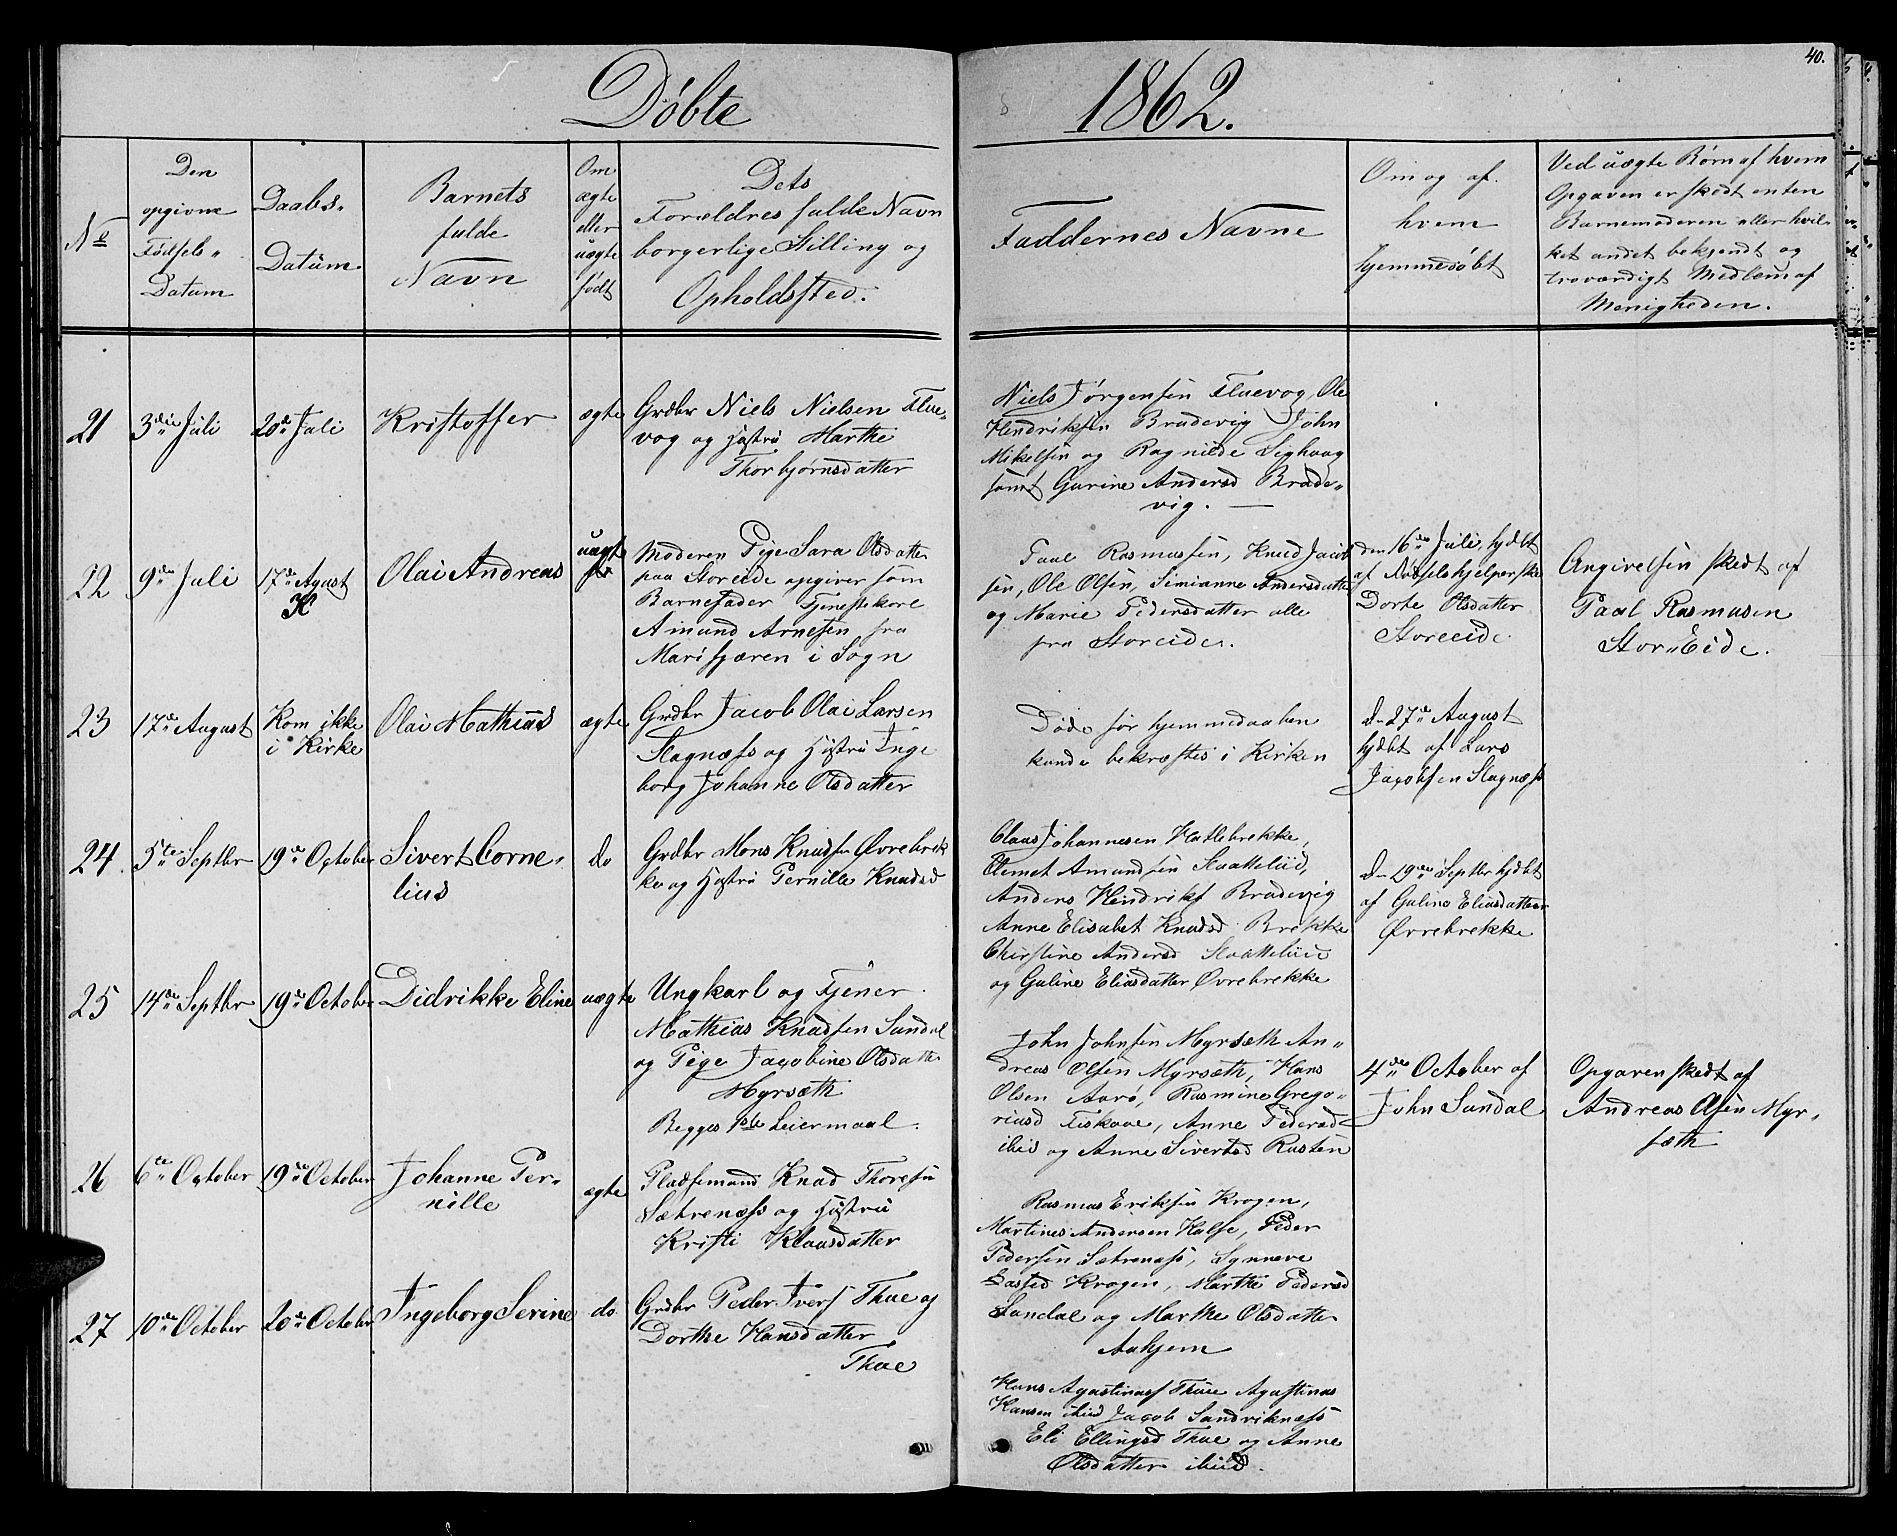 40.
Døbte 1862.
No
Den opgivne Fødsels Datum
Daabs Datum
Barnets fulde Navn
Om ægte eller uægte født
Dets Forældres fulde Navn borgerlige Stilling og Opholdssted.
Faddernes Navne
Om og af hvem hjemmedøbt
Ved uægte Børn af hvem
Opgaven er skedt enten
Barnemoderen eller hvil-
ket andet bekjendt og
troværdigt Medlem af
Menigheden.
21
3die Juli
20de Juli
Kristoffer
ægte
Grdbr Niels Nielsen Flue-
vog og Hustru Marthe
Thorbjørnsdatter
Niels Jørgensen Fluevog, Ole
Hendriksen Bradevig John
Mikelsen og Ragnilde Sighaag
samt Gurine Andersd Brade-
vig.
22
9de Juli
17de Agust
K
Olai Andreas
uægte
Moderen Pige Sara Olsdatter
paa Storeide opgiver som
Barnefader Tjenestekare
Amund Arnesen fra
Marifjæren i Sogn
Paal Rasmussen, Knud Jacob
sen, Ole Olsen, Simianne Andersdatter
og Marie Pedersdatter alle
fra Storeide.
den 16de Juli, hjdbt
af Nødselshjelperske
Dorte Olsdatter
Storeeide
Angivelsen skedt af
Paal Rasmusen
Stor-Eide.
23
17de August
Kom ikke
i Kirke
Olai Mathias
ægte
Grdbr Jacob Olai Larsen
Slagnæss og Hustru Inge
borg Johanne Olsdatter
Døde før hjemmedaaben
kunde bekræftes i Kirken
D. 27de August
hjdbt af Lars
Jacobsen Slagnæss
24.
5te Septbr
19de October
Sivert Corne-
lius
do
Grdbr Mons Knudsen Øvrebrek
ke og Hustru Pernille Knudsd
Claas Johannesen Hatlebrekke,
Clemet Amundsen Skatteliid,
Anders Hendriks Bradevig
Anne Elisabet Knudsd Brekke
Christine Andersd Skatteliid
og Guline Eliasdatter Øvrebrekke
D. 29de Septbr hjdbt
af Guline Eliasdatter
Øvrebrekke
25
14de Septbr
19de October
Didrikke Eline
uægte
Ungkarl og Tjener
Mathias Knudsen Sundal
og Pige Jacobine Olsdatter
Myrsæth
Begges 1ste Leiermaal.
John Johnsen Myrsæth An-
dreas Olsen Myrsæth, Hans
Olsen Aarø, Rasmine Grego-
riusd Fiskaae, Anne Pedersd
ibid og Anne Sivertsd Rusten
4de October af
John Sundal
Opgaven skedt af
Andreas Olsen Myr-
sæth
26
6te October
19de October
Johanne Per-
nille
ægte
Pladsemand Knud Thoresen
Sætrenæss og Hustru
Kristi Klausdatter
Rasmus Eriksen Krogen,
Martines Andersen Kalse, Peder
Pedersen Sætrenæss, Synneve
Lasted Krogen, Marthe Pedersd
Sundal og Marthe Olsdatter
Aahjem
27
10de October
20de October
Ingeborg Serine
do
Grdbr Peder Ivers Thue og
Dorthe Hansdatter
Thue
Hans Agustinuss Thue Agustinus
Hansen ibid Jacob Sandviknæss
Eli Ellingsd Thue og Anne
Olsdatter ibid.